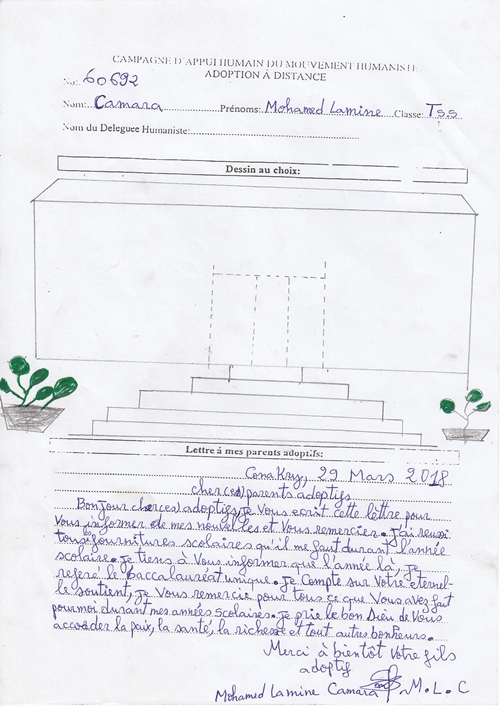 CAMPAGNE D'APPUI HUMAIN DU MOUVEMENT HUMANISTE
ADOPTION À DISTANCE
No: 60692
Nom: Camara Prénoms: Mohamed Lamine Classe: T.s.s
Nom du Deleguee Humaniste:
Dessin au choix:
Lettre á mes parents adoptifs:
Conakry, 29 Mars 2018
cher(es) parents adoptifs,
Bonjour cher(es) adoptifs, je Vous ecrit cette lettre pour
Vous informer de mes nouvelles et Vous remercier. j'ai reussi
tous fournitures scolaires qu'il me faut durant l'année
scolaire. je tiens à Vous informer que l'année là, je
referé le Baccalaureat unique. je Compte sur Votre eternel-
le soutient, je Vous remercie pour tous ce que Vous avez fait
pour moi durant mes années scolaires. je prie le bon Dieu de Vous
accorder la paix, la santé, la richesse et tout autres bonheurs.
Merci à bientôt Votre fils
adoptif
Mohamed Lamine Camara M.L.C